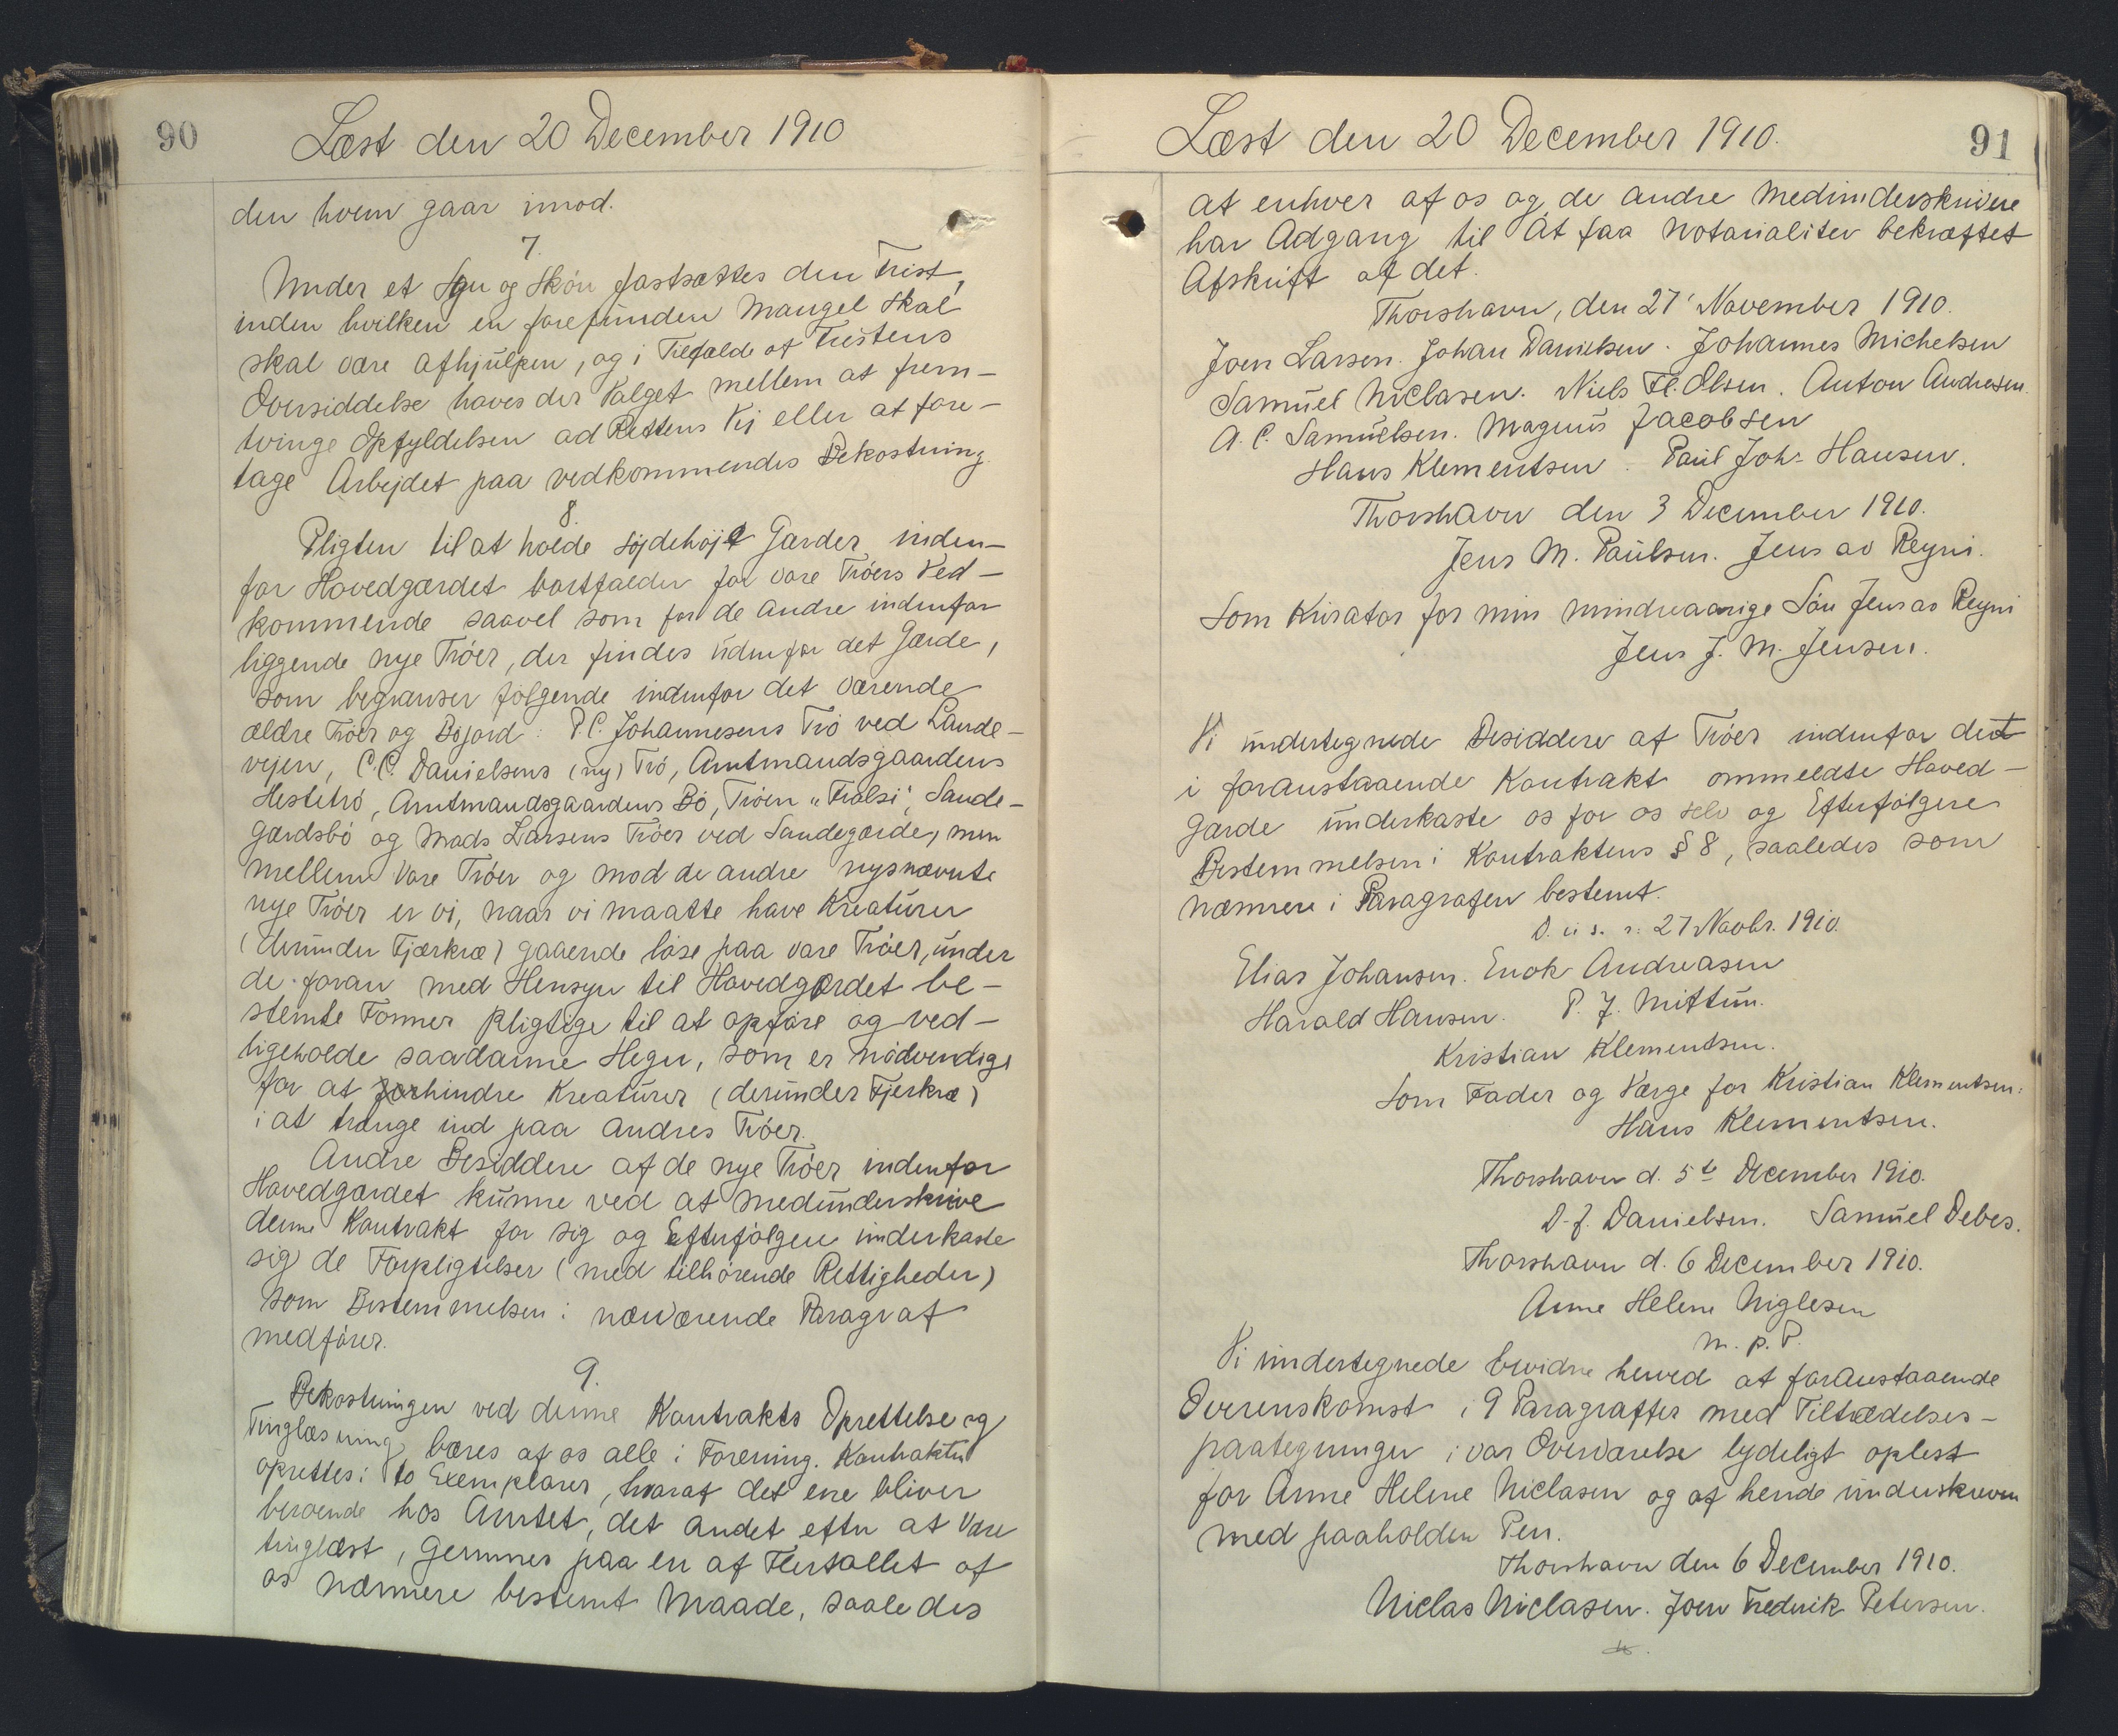 90
Læst den 20 December 1910
den hvem gaar imod.
7.
Under et Syn og Skön fastsættes den Frist,
inden hvilken en forefunden Mangel skal
skal være afhjulpen, og i Tilfælde af Fristens
Oversiddelse haves der Valget mellem at frem-
tvinge Opfyldelsen ad Rettens Vej eller at fore-
tage Arbejdet paa vedkommendes Bekostning.
8.
Pligten til at holde söjdehöje Gærder inden-
for Hovedgærdet bortfalder for vore Tröers Ved-
kommende saavel som for de andre indenfor
liggende nye Tröer, der findes udenfor det Gærde,
som begrænser fölgende indenfor det værende
ældre Tröer og Böjord: P.C. Johannesens Trö ved Lande-
vejen, C.C. Danielsens (ny) Trö, Amtmandsgaardens
Hestetrö, Amtmandsgaardens Bö, Tröen "Frælsi", Sande-
gærdsbö og Mads Larsens Tröer ved Sandegærde, men
mellem vore Tröer og mod de andre nysnævnte
nye Tröer er vi, naar vi maatte have Kreaturer
(derunder Fjærkræ) gaaende löse paa vore Tröer, under
de foran med Hensyn til Hovedgærdet be-
stemte Former pligtige til at opföre og ved-
ligeholde saadanne Hegn, som er nödvendige
for at forhindre Kreaturer (derunder Fjerkræ)
i at trænge ind paa andres Tröer.
Andre Besiddere af de nye Tröer indenfor
Hovedgærdet kunne ved at medunderskrive
denne Kontrakt for sig og Efterfölgere underkaste
sig de Forpligtelser (med tilhörende Rettigheder)
som Bestemmelsen i nærværende Paragraf
medförer.
9.
Bekostningen ved denne Kontrakts Oprettelse og
Tinglæsning bæres af os alle i Forening. Kontrakten
oprettes i to Exemplarer, hvoraf det ene bliver
beroende hos Amtet, det andet efter at være
tinglæst, gemmes paa en af Flertallet af
os nærmere bestemt Maade, saaledes
Læst den 20 December 1910.
91
at enhver af os og de andre Medunderskrivere
har Adgang til at faa notarialiter bekræftet
Afskrift af det.
Thorshavn, den 27' November 1910.
Joen Larsen. Johan Danielsen. Johannes Michelsen
Samuel Niclasen. Niels Fl. Olsen. Anton Andreasen.
A. C. Samuelsen. Magnus Jacobsen
Hans Klementsen. Paul Joh. Hansen.
Thorshavn den 3 December 1910.
Jens M. Paulsen. Jens av Reyni.
Som Kurator for min mindreaarige Sön Jens av Reyni
Jens J. M. Jensen.
Vi undertegnede Besiddere af Tröer indenfor det
i foranstaaende Kontrakt ommeldte Hoved-
gærde underkaste os for os selv og Efterfölgere
Bestemmelsen i Kontraktens § 8, saaledes som
nærmere i Paragrafen bestemt.
D. u. s. r. 27 Novbr. 1910.
Elias Johansen. Enok Andreasen
Harald Hansen. P. J. Mittun.
Kristian Klementsen.
Som Fader og Værge for Kristian Klementsen:
Hans Klementsen.
Thorshavn d. 5te December 1910.
D. J. Danielsen. Samuel Debes.
Thorshavn d. 6 December 1910.
Anne Helene Niglesen
m. p. P.
Vi undertegnede bevidne herved at foranstaaende
Overenskomst i 9 Paragraffer med Tiltrædelses-
paategninger i vor Overværelse lydeligt oplæst
for Anne Helene Niclasen og af hende underskreven
med paaholden Pen.
Thorshavn den 6 December 1910.
Niclas Niclasen. Joen Frederik Petersen.